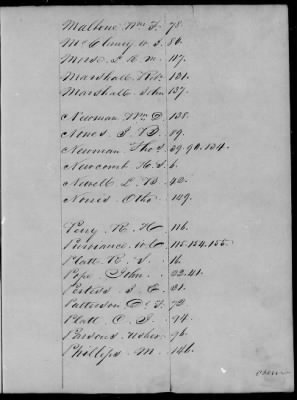 Malbone Wm F. 78.
McChesney W. S. 86.
Morse L. A. M. 117.
Marshall Robt 121.
Marshall John 137.
Newman Wm D. 138.
Nones J. B. 89.
Newman Thos 29. 90. 134.
Newcomb H. S. 6.
Newell L. B. 42.
Norris Otho 149.
Perry R. H. 116.
Purviance 115. 154. 155.
Platt R. S. 16.
Pope John 22. 41.
Perless S. C. 21.
Patterson 72
Platt C. T. 94.
Parsons Usher 96.
Phillips M. 146.